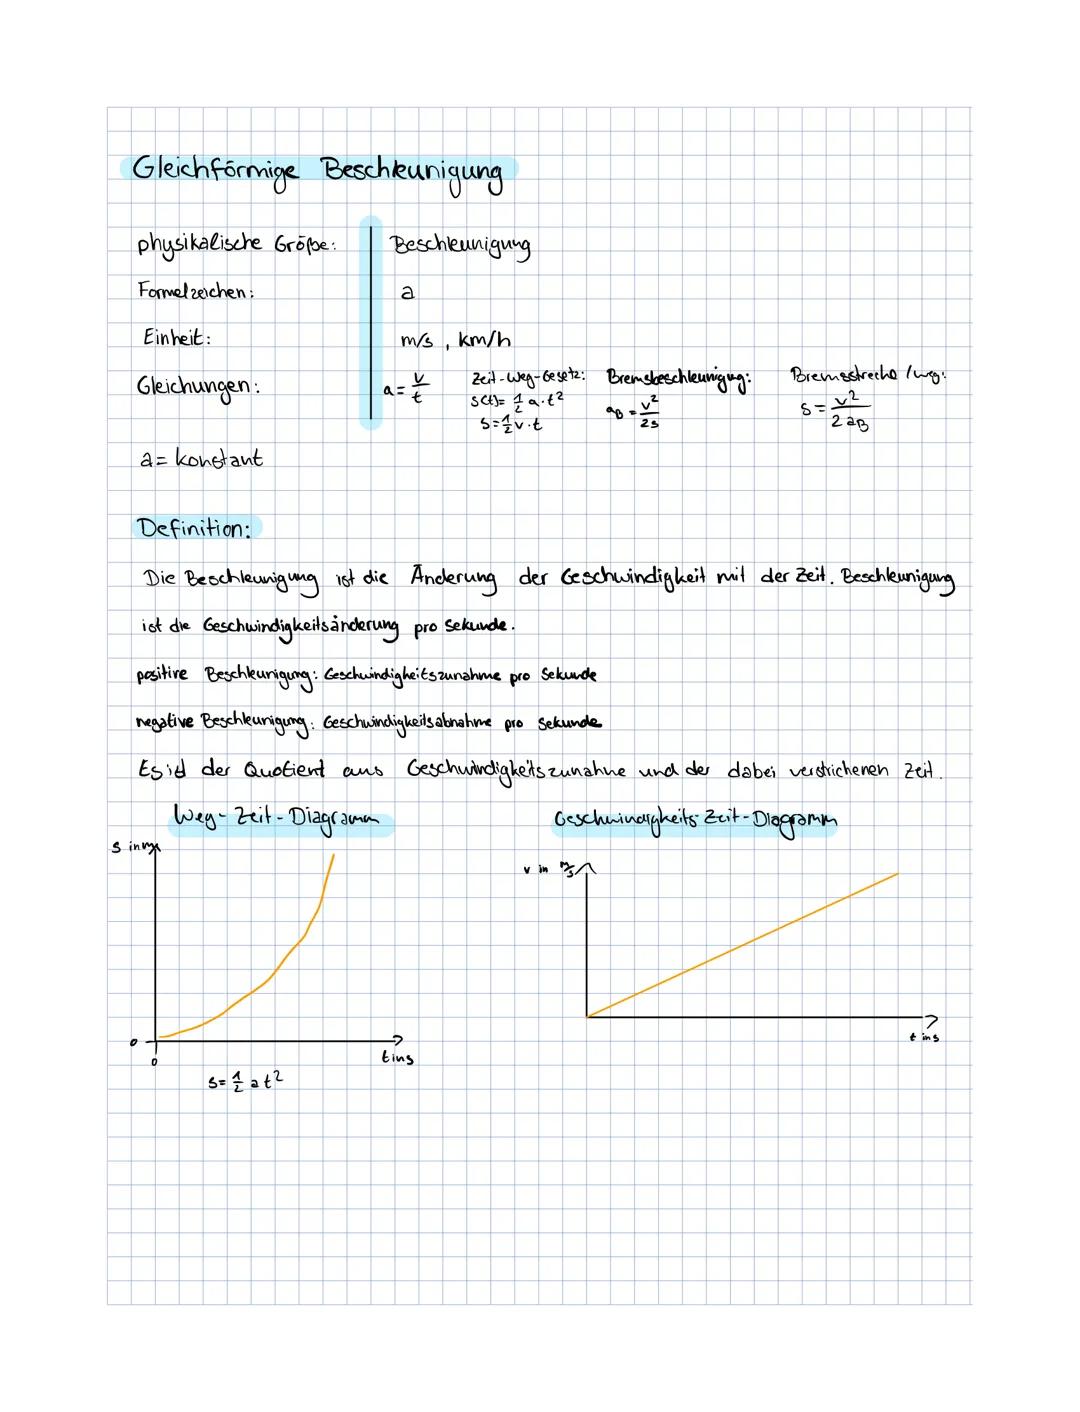 Gleichförmige Beschleunigung
physikalische Größe: Beschleunigung
Formelzeichen: a
Einheit: m/s , km/h
Gleichungen: a = v/t
Zeit-Weg-Gesetz:
s(t) = 1/2 a · t²
s = 1/2 v · t
Bremsbeschleunigung:
aB = v²/2s
Bremsstrecke / weg:
s = v²/2 aB
a = konstant
Definition:
Die Beschleunigung ist die Änderung der Geschwindigkeit mit der Zeit. Beschleunigung
ist die Geschwindigkeitsänderung pro Sekunde.
positive Beschleunigung: Geschwindigkeitszunahme pro Sekunde
negative Beschleunigung: Geschwindigkeitsabnahme pro Sekunde
Es ist der Quotient aus Geschwindigkeitszunahme und der dabei verstrichenen Zeit.
Weg-Zeit-Diagramm
s in m
0
0
t in s
s = 1/2 a t²
Geschwindigkeits-Zeit-Diagramm
v in m/s
t in s